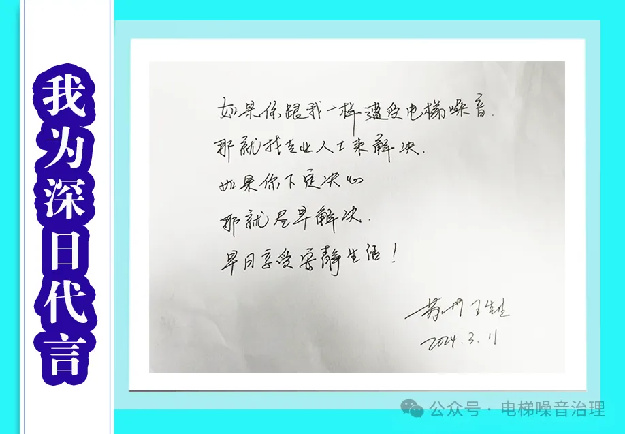 我为深日代言
如果你跟我一样遭受电梯噪音.
那就找专业人士来解决.
如果你下定决心
那就尽早解决.
早日享受安静生活！
苏州 丁先生
2024.3.11
公众号·电梯噪音治理